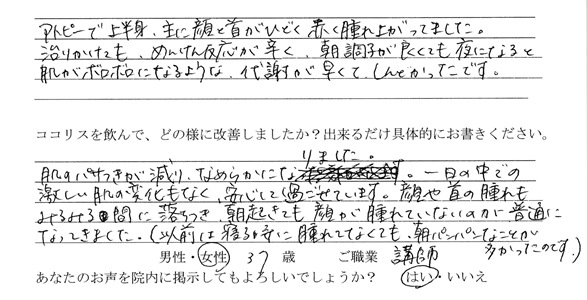 アトピーで上半身、主に顔と首がひどく赤く腫れ上がってました。
治りかけても、めんけん反応が辛く、朝調子が良くても夜になると
肌がボロボロになるような、代謝が早くて、しんどかったです。
ココリスを飲んで、どの様に改善しましたか?出来るだけ具体的にお書きください。
肌のパサつきが減り、なめらかになりました。一日の中での
激しい肌の変化もなく、安心して過ごせています。顔や首の腫れも
みるみる間に落ちつき、朝起きても顔が腫れていないのが普通に
なってきました。(以前は寝る時に腫れてなくても、朝パンパンなことが
多かったのです。)
男性・女性 37 歳 ご職業 講師
あなたのお声を院内に掲示してもよろしいでしょうか? はい・いいえ